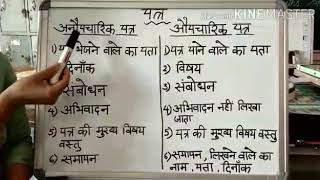 पत्र
अनौपचारिक पत्र
1) भेजने वाले का पता
दिनाँक
संबोधन
4) अभिवादन
5) पत्र की मुख्य विषय
वस्तु
6) समापन
औपचारिक पत्र
1) पत्र पाने वाले का पता
2) विषय
3) संबोधन
4) अभिवादन नहीं लिखा
जाता
5) पत्र की मुख्य विषय वस्तु
6) समापन, लिखने वाले का
नाम. पता. दिनाँक
KINEMASTER